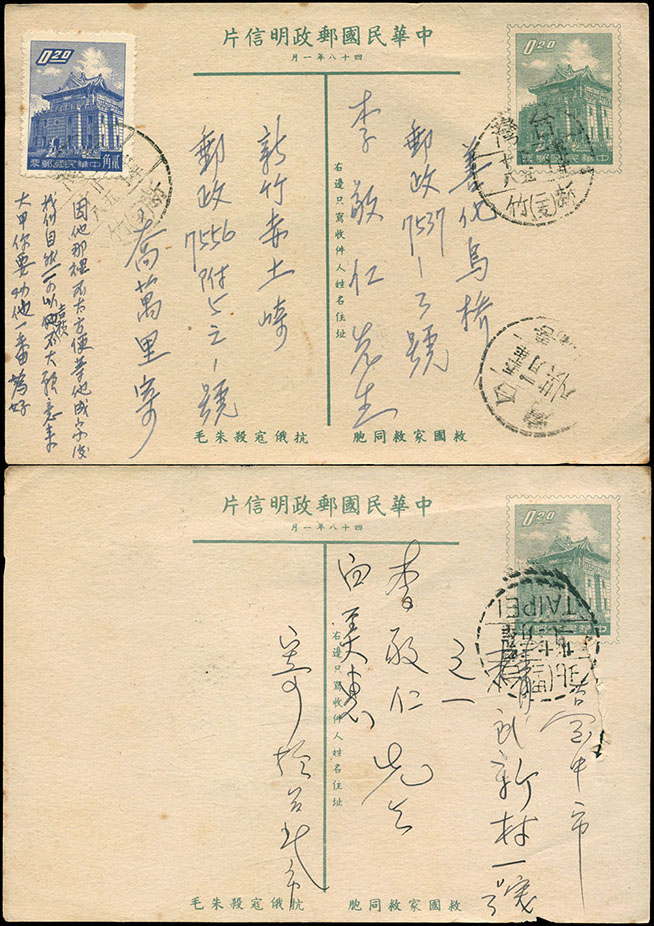 中華民國郵政明信片
四十八年一月
0.20
中華民國郵票
0.20
中華民國郵票
貳角
善化烏橋
郵政7537-13號
李敬仁先生
右邊只寫收件人姓名住址
新竹赤土崎
郵政7556附5之1號
喬萬里寄
因他那裡不大方便等他成家後
大甲你要勸他一番為好
救國家救同胞
抗俄寇殺朱毛
中華民國郵政明信片
四十八年一月
0.20
中華民國郵票
TAIPEI
台中市
新村一號
之一
李敬仁先生
右邊只寫收件人姓名住址
寄於台北市
救國家救同胞
抗俄寇殺朱毛